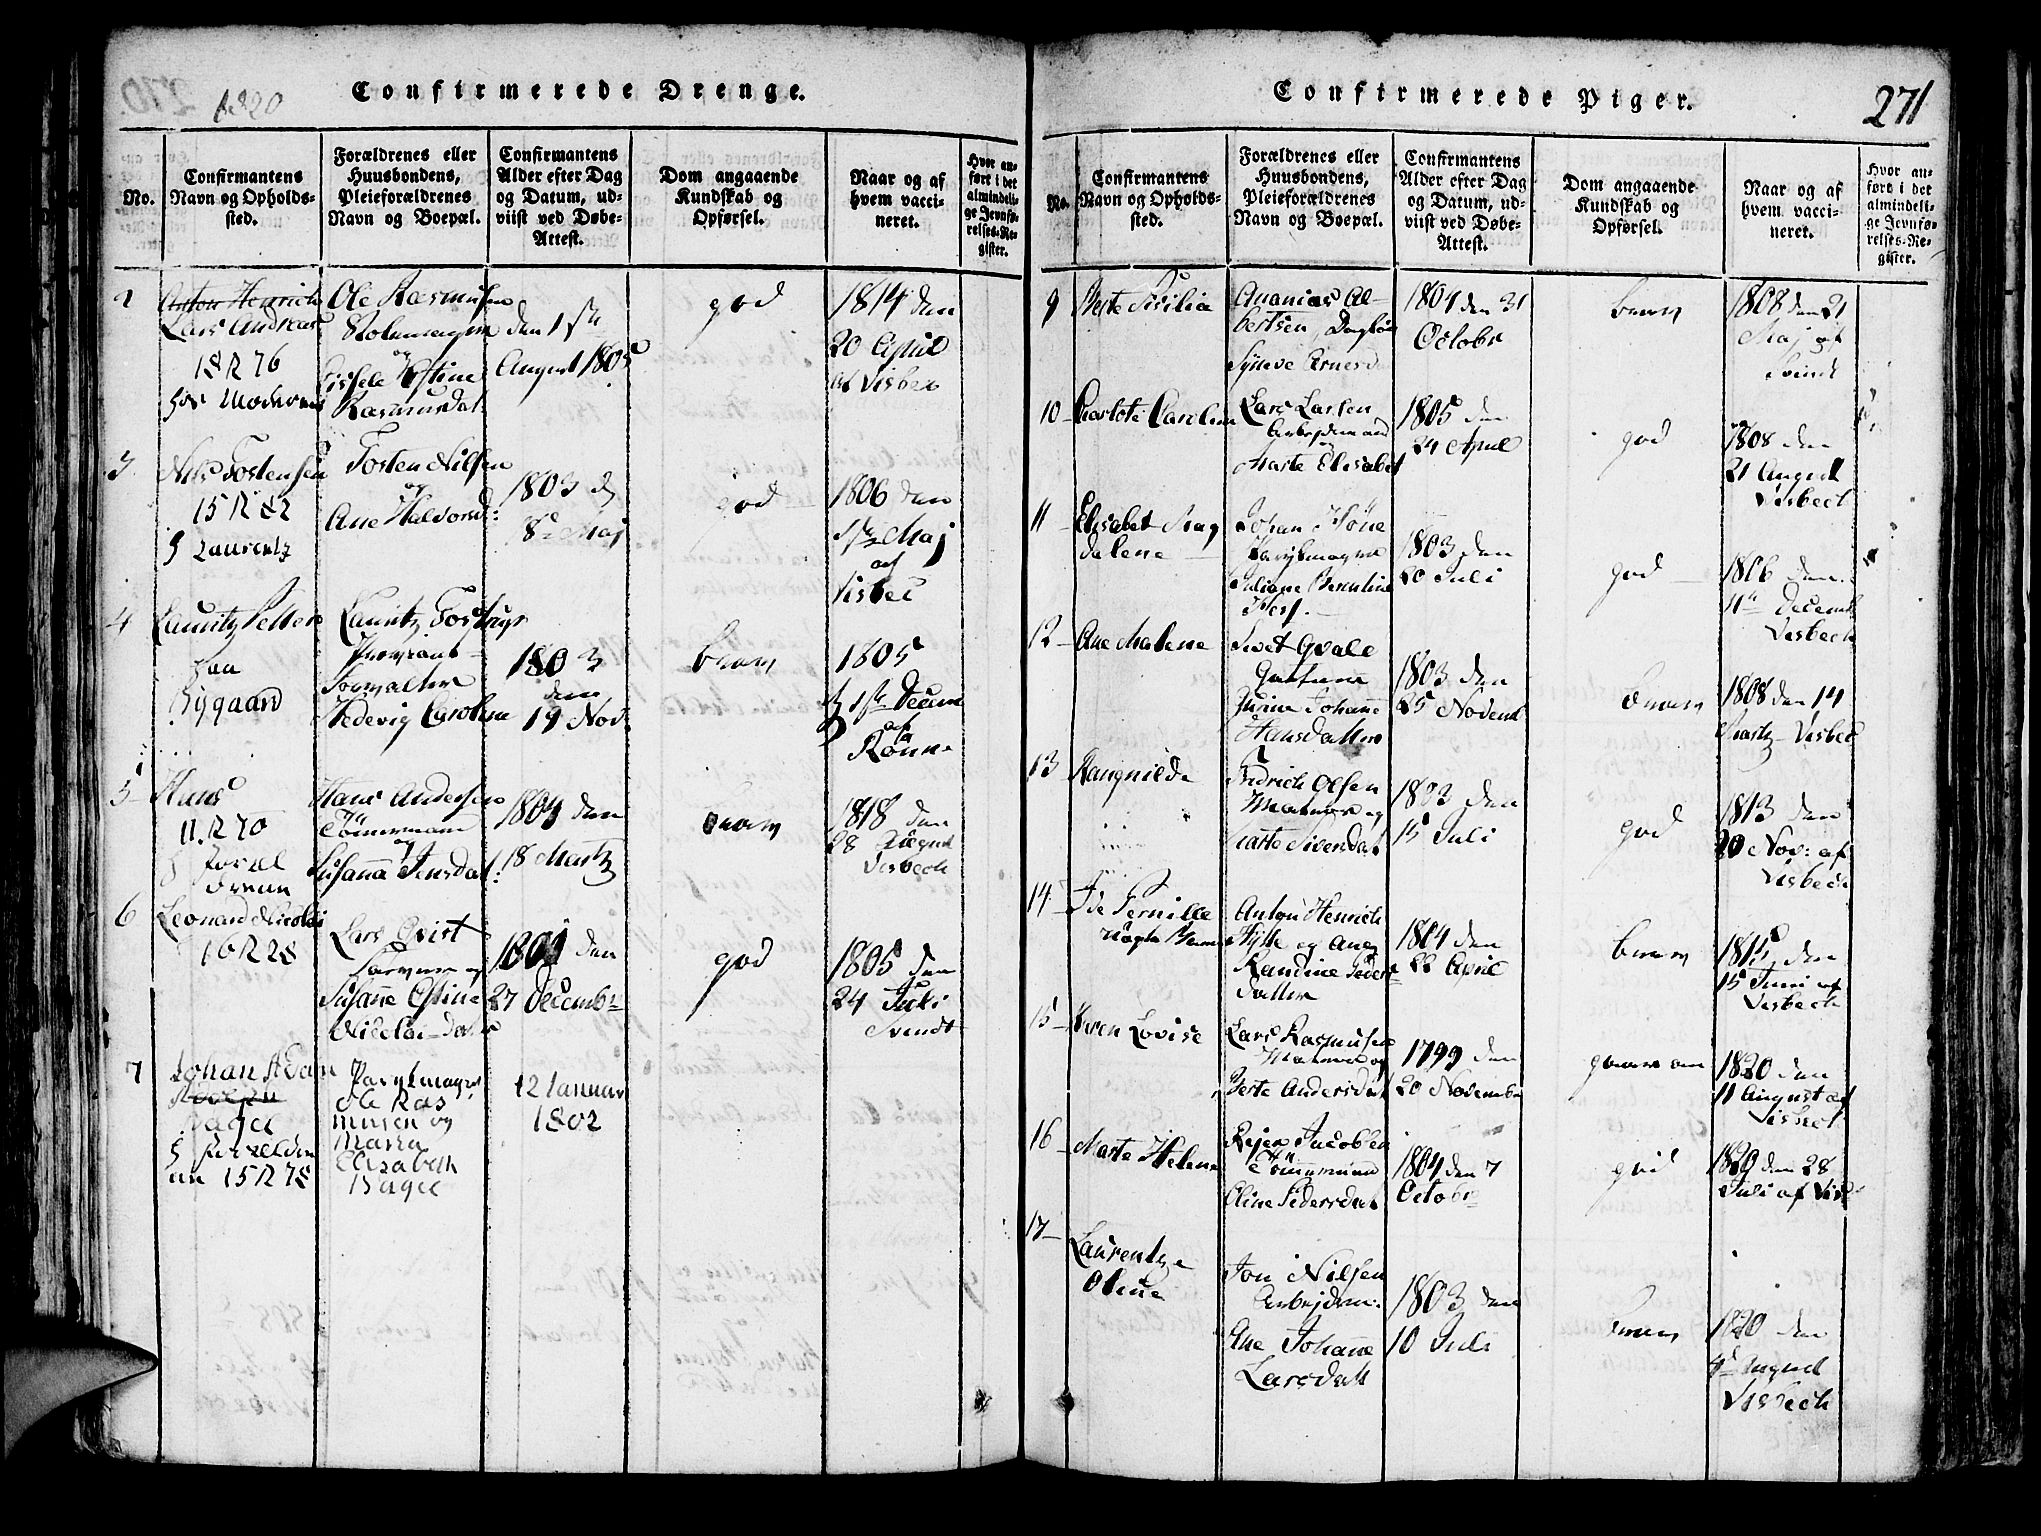 1820
Confirmerede Drenge.
No.
Confirmantens
Navn og Opholds-
sted.
Forældrenes eller
Huusbondens,
Pleieforældrenes
Navn og Boepæl.
Confirmantens
Alder efter Dag
og Datum, ud-
viist ved Døbe-
Attest.
Dom angaaende
Kundskab og
Opførsel.
Naar og af
hvem vacci-
neret.
Hvor an-
ført i det
almindeli-
ge Jevnfø-
relses-Re-
gister.
2
Anton Henrich
Lars Andreas
18 R 76
hos Moderen
Ole Rasmusen
og
Kistine
Rasmusdat
den 1ste
August 1805
god
1814 den
20 April
af Visbec
3
Nils Tostensen
15 R 82
Laurentz
Tosten Nilsen
og
Ane Halvorsd:
1803 d
8de Maj
god
1806 den
Maj
af
Visbec
4
Lauritz Petter
Nygaard
Lauritz
Proviant
Forvalter
Hedevig Carolina
1803
den
19 Nov.
brav
1805
Decem
af
Rønne
5
Hans
11. R 70
Hans Andersen
Tömermand
og
Susanna Jensdat:
1804 den
18 Martz
brav
1818 den
28 August
Visbech
6
Leonard Nicolai
16 R 28
Lars Qvist
og
Susanne Cstine
Nicolai Dater
1801 den
27 Decembr
god
1805 den
24 Juli
Svendt
7
Johan Adam
Bagee
15 R 78
Ole Ras
musen og
Maria
Elisabeth
Bagee
12 Januar
1802
Confirmerede Piger.
271
No.
Confirmantens
Navn og Opholds-
sted.
Forældrenes eller
Huusbondens,
Pleieforældrenes
Navn og Boepæl.
Confirmantens
Alder efter Dag
og Datum, ud-
viist ved Døbe-
Attest.
Dom angaaende
Kundskab og
Opførsel.
Naar og af
hvem vacci-
neret.
Hvor an-
ført i det
almindeli-
ge Jevnfø-
relses-Re-
gister.
9
Berte Sisilia
Ananias Al-
bertsen
Synneve Arnesd
1804 den 31
Octobr
brav
1808 den 21
Maj af
Svindt
10
Charlote Carolina
Lars Larsen
Arbejdsmand
Marte Elisabet
1805 den
24 April
god
1808 den
21 August
Visbech
11
Elisabet Mag
dalene
Johan Höne
Juliane Berntine
1803 den
20 Juli
god
1806 den
11te Decemb
Visbech
12
Ane Malene
Sivet Qvale
Johanne
Hansdatter
1803 den
25 Novemb
brav
1808 den 14
Martz Visbec
13
Rangnilde
Fredrich Olsen
Matros og
Marte Siversdat
1803 den
15 Juli
god
1813 den
20 Nov: af
Visbech
14
Ide Pernille
Anton Henrich
og Ane
Randine Peders
datter
1804 den
22 April
brav
1815 den
15 Juni af
Visbech
15
Karen Lovise
Lars Rasmusen
Matros og
Berte Andersdat
1799 den
20 Novembr
1820 den
11 August af
Visbech
16
Marte Helene
Rejer Jacobsen
Tömermand
Eline Pedersdat
1804 den 7
Octobr
god
1820 den 28
Juli af Visb
17
Laurentze
Oline
Jon Nilsen
Arbejdsm:
Ane Johanne
Larsdatt
1803 den
10 Juli
brav
1820 den
August
Visbech